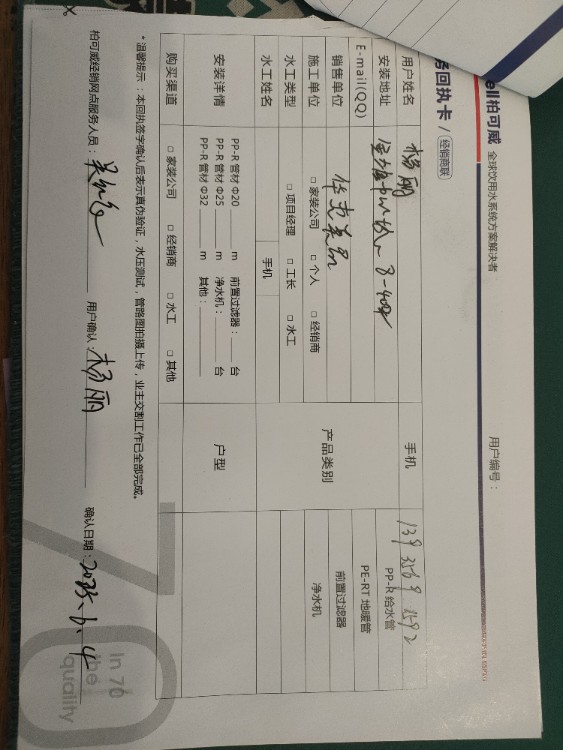 ell柏可威 全球饮用水系统方案解决者
用户编号：
务回执卡 / 经销商联
用户姓名 杨丽 手机 139 3569 1592
安装地址 8-402 PP-R 给水管
E-mail(QQ) PE-RT 地暖管
销售单位 产品类别 前置过滤器
施工单位 □ 家装公司 □ 个人 □ 经销商 净水机
水工类型 □ 项目经理 □ 工长 □ 水工
水工姓名 手机
安装详情 PP-R 管材 Φ20 m 前置过滤器： 台 户型
PP-R 管材 Φ25 m 净水机： 台
PP-R 管材 Φ32 m 其他：
购买渠道 □ 家装公司 □ 经销商 □ 水工 □ 其他
*温馨提示：本回执签字确认后表示真伪验证，水压测试，管路图拍摄上传，业主交割工作已全部完成。
柏可威经销网点服务人员： 用户确认：杨丽 确认日期：2025.6.4
70
In 70
the
quality